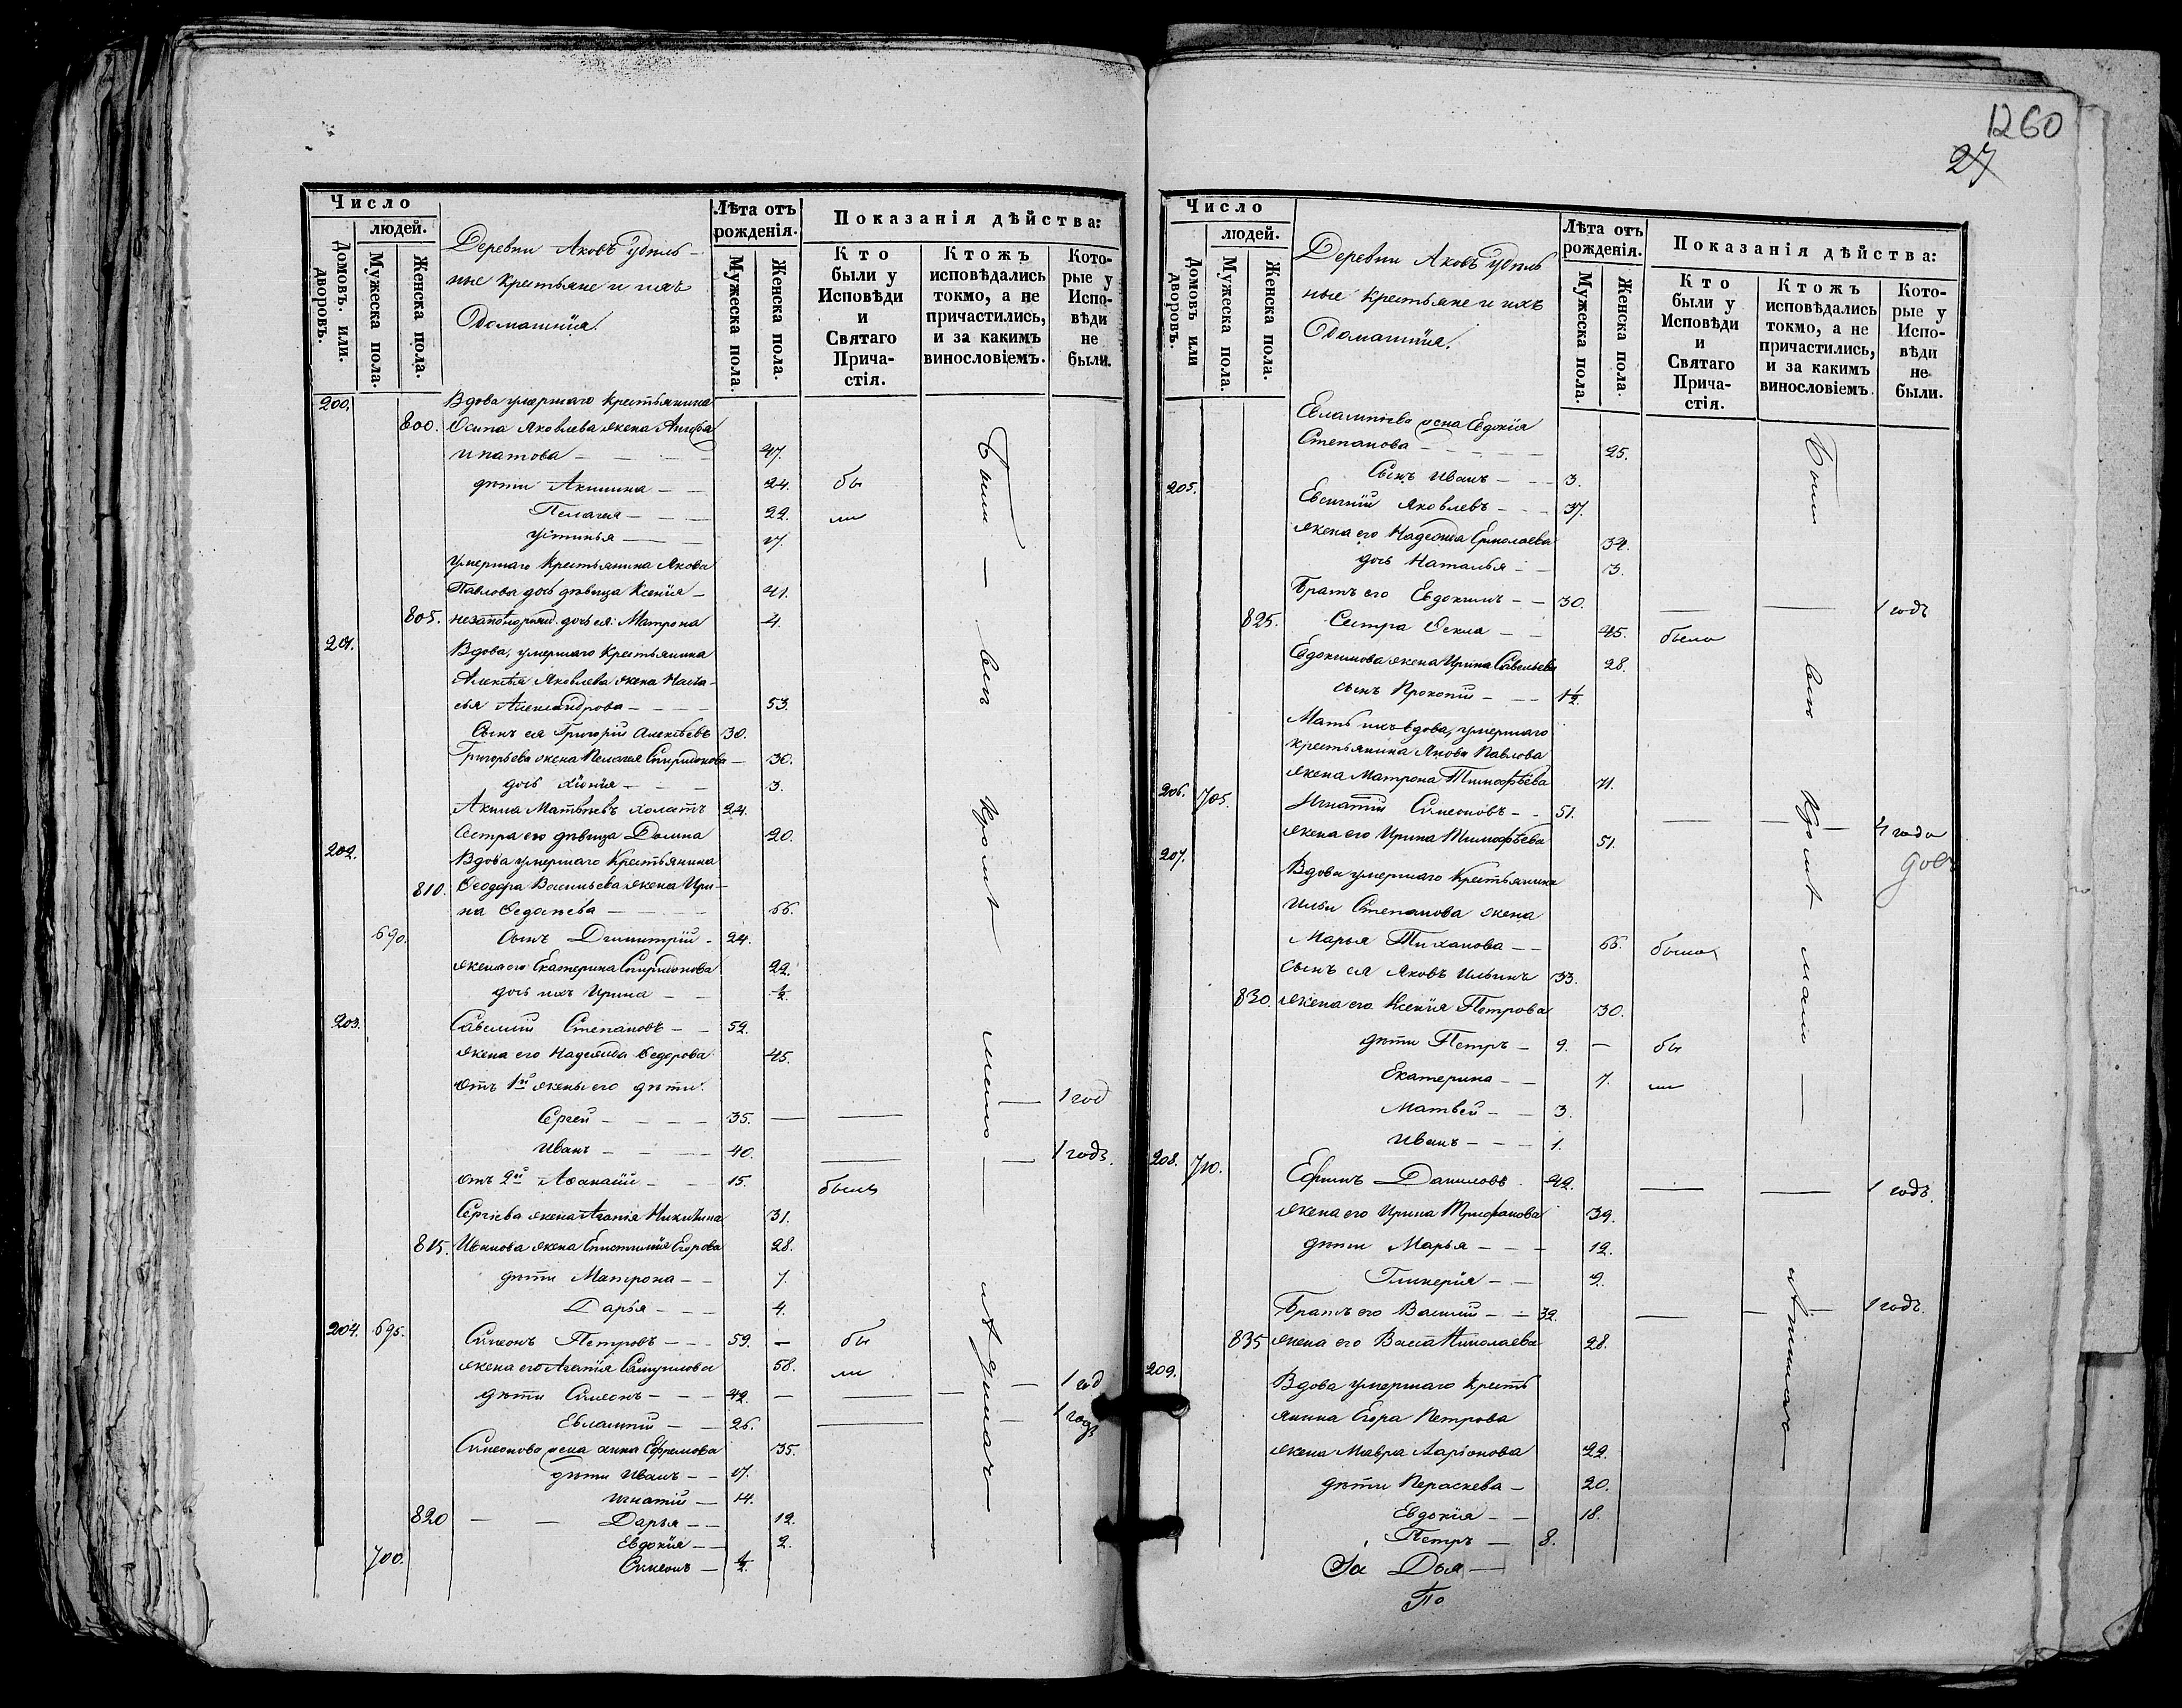 1260
27
Число
людей.
Домовъ. или. дворовъ.
Мужеска пола.
Женска пола.
Деревни Аковъ удѣль-
ные крестьяне и ихъ
Домашнія.
Лѣта отъ
рожденія.
Мужеска пола.
Женска пола.
Показанія дѣйства:
Кто
были у
Исповѣди
и
Святаго
Прича-
стія.
Ктожъ
исповѣдались
токмо, а не
причастились,
и за какимъ
винословіемъ.
Кото-
рые у
Испо-
вѣди
не
были.
200. Вдова умершаго крестьянина
800. Осипа Яковлева жена
ипатова — 47.
дѣти Акилина — 24. бы
Пелагея — 22. ли
Устинья — 17.
умершаго крестьянина Якова
Павлова дочь дѣвица Ксенія — 41.
805. дочь ея: Матрона 4.
201. Вдова, умершаго крестьянина
Алексѣя Яковлева жена Наста-
сья Александрова — 53.
Сынъ ея Григорій Алексѣевъ 30.
Григорьева жена Пелагея Спиридонова — 30.
дочь Хіонія — 3.
Акила Матвѣевъ холастъ 24.
Сестра его дѣвица Домна 20.
202. Вдова умершаго Крестьянина
810. Ѳеодора Васильева жена Ири-
на — 66.
690. Сынъ Димитрій — 24.
жена его Екатерина Спиридонова 22.
дочь ихъ Ирина — ½.
203. Савелій Степановъ — 52.
жена его Надежда Ѳедорова 45.
Отъ 1й жены его дѣти:
Сергей — 35. — — — 1 год
Иванъ — 40. — — 1 годъ.
отъ 2й Аѳанасій — 15. былъ
Сергіева жена Агапія Никитина 31.
815. Иванова жена Епистимія Егорова 28.
дѣти Матрона — 7.
Дарья — 4.
204. 695. Симеонъ Петровъ — 59. — бы
жена его Агапія Самуилова 58. ли
дѣти Симеонъ — 42. — — — 1 год
Евлампій — 26. — 1 годъ
Симеонова жена Анна Ефремова 35.
дѣти Иванъ — 17.
Игнатій — 14.
820 — — Дарья — 12.
Евдокія — 2.
700. Симеонъ — ½.
Были — всѣ
кромѣ
мало
лѣтнихъ
Число
людей.
Домовъ или дворовъ.
Мужеска пола.
Женска пола.
Деревни Аковъ удѣль
ные крестьяне и ихъ
Домашнія.
Лѣта отъ
рожденія.
Мужеска пола.
Женска пола.
Показанія дѣйства:
Кто
были у
Исповѣди
и
Святаго
Прича-
стія.
Ктожъ
исповѣдались
токмо, а не
причастились,
и за какимъ
винословіемъ.
Кото-
рые у
Испо-
вѣди
не
были.
Евлампіева жена Евдокія
Степанова — 25.
Сынъ Иванъ — 3.
205. Евсигній Яковлевъ — 37.
жена его Надежда Ермолаева 34.
дочь Наталья — 3.
Братъ его Евдокимъ — 30. — — 1 годъ
825. Сестра Ѳекла — 45. была
Евдокимова жена Ирина Савельева 28.
сынъ Прокопій — 1½.
Мать ихъ вдова, умершаго
крестьянина Якова Павлова
жена Матрона Тимофѣева 71.
206. 705. Игнатій Симеоновъ — 51. — — 4 года
жена его Ирина Тимофѣева 51.
207. Вдова умершаго Крестьянина
Ильи Степанова жена
Марья Тиханова — 66. была
сынъ ея Яковъ Ильинъ 33.
830. жена его Ксенія Петрова 30.
дѣти Петръ — 9. — бы
Екатерина — 7. ли
Матвей — 3.
Иванъ — 1.
208. 710. Ефимъ Даниловъ. 42. — — 1 годъ.
жена его Ирина Трифонова 39.
дѣти Марья — 12.
Гликерія — 9.
Братъ его Василій — 32. — — 1 годъ.
835 жена его Васса Николаева 28.
209. Вдова умершаго Кресть
янина Егора Петрова
жена Мавра Ларіонова 42.
дѣти Пераскева — 20.
Евдокія — 18.
Петръ — 8.
Были
всѣ
кромѣ мало —
лѣтнихъ
За Дья —
По